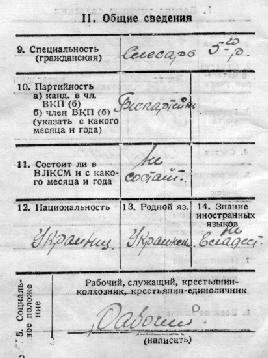 II. Общие сведения
9. Специальность (гражданская)
Слесарь 5-го р.
10. Партийность
а) канд. в чл. ВКП (б)
б) член ВКП (б) (указать с какого месяца и года)
Беспартийн
11. Состоит ли в ВЛКСМ и с какого месяца и года
Не состоит.
12. Национальность
Украинец
13. Родной яз.
Украинск
14. Знание иностранных языков
не владеет
5. Социальное положение
Рабочий, служащий, крестьянин-колхозник, крестьянин-единоличник
Рабочий
(написать)